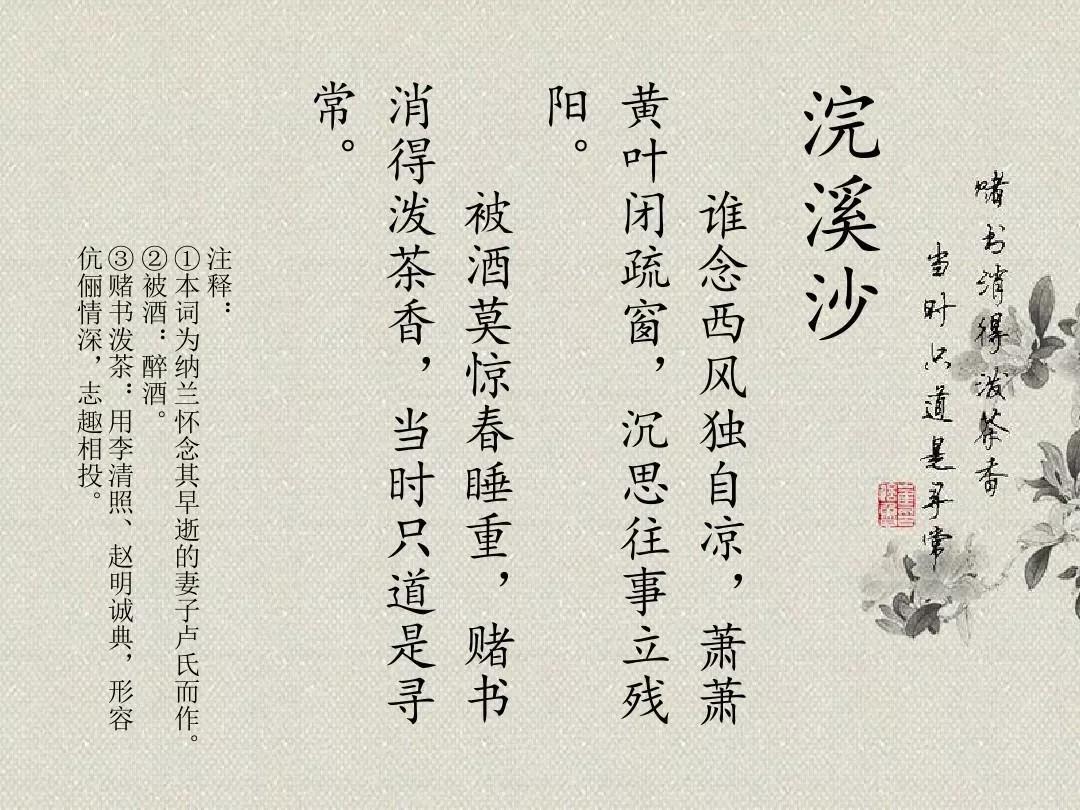 赌书消得泼茶香
当时只道是寻常
浣溪沙
谁念西风独自凉，萧萧
黄叶闭疏窗，沉思往事立残
阳。
被酒莫惊春睡重，赌书
消得泼茶香，当时只道是寻
常。
注释：
①本词为纳兰怀念其早逝的妻子卢氏而作。
②被酒：醉酒。
③赌书泼茶：用李清照、赵明诚典，形容
伉俪情深，志趣相投。